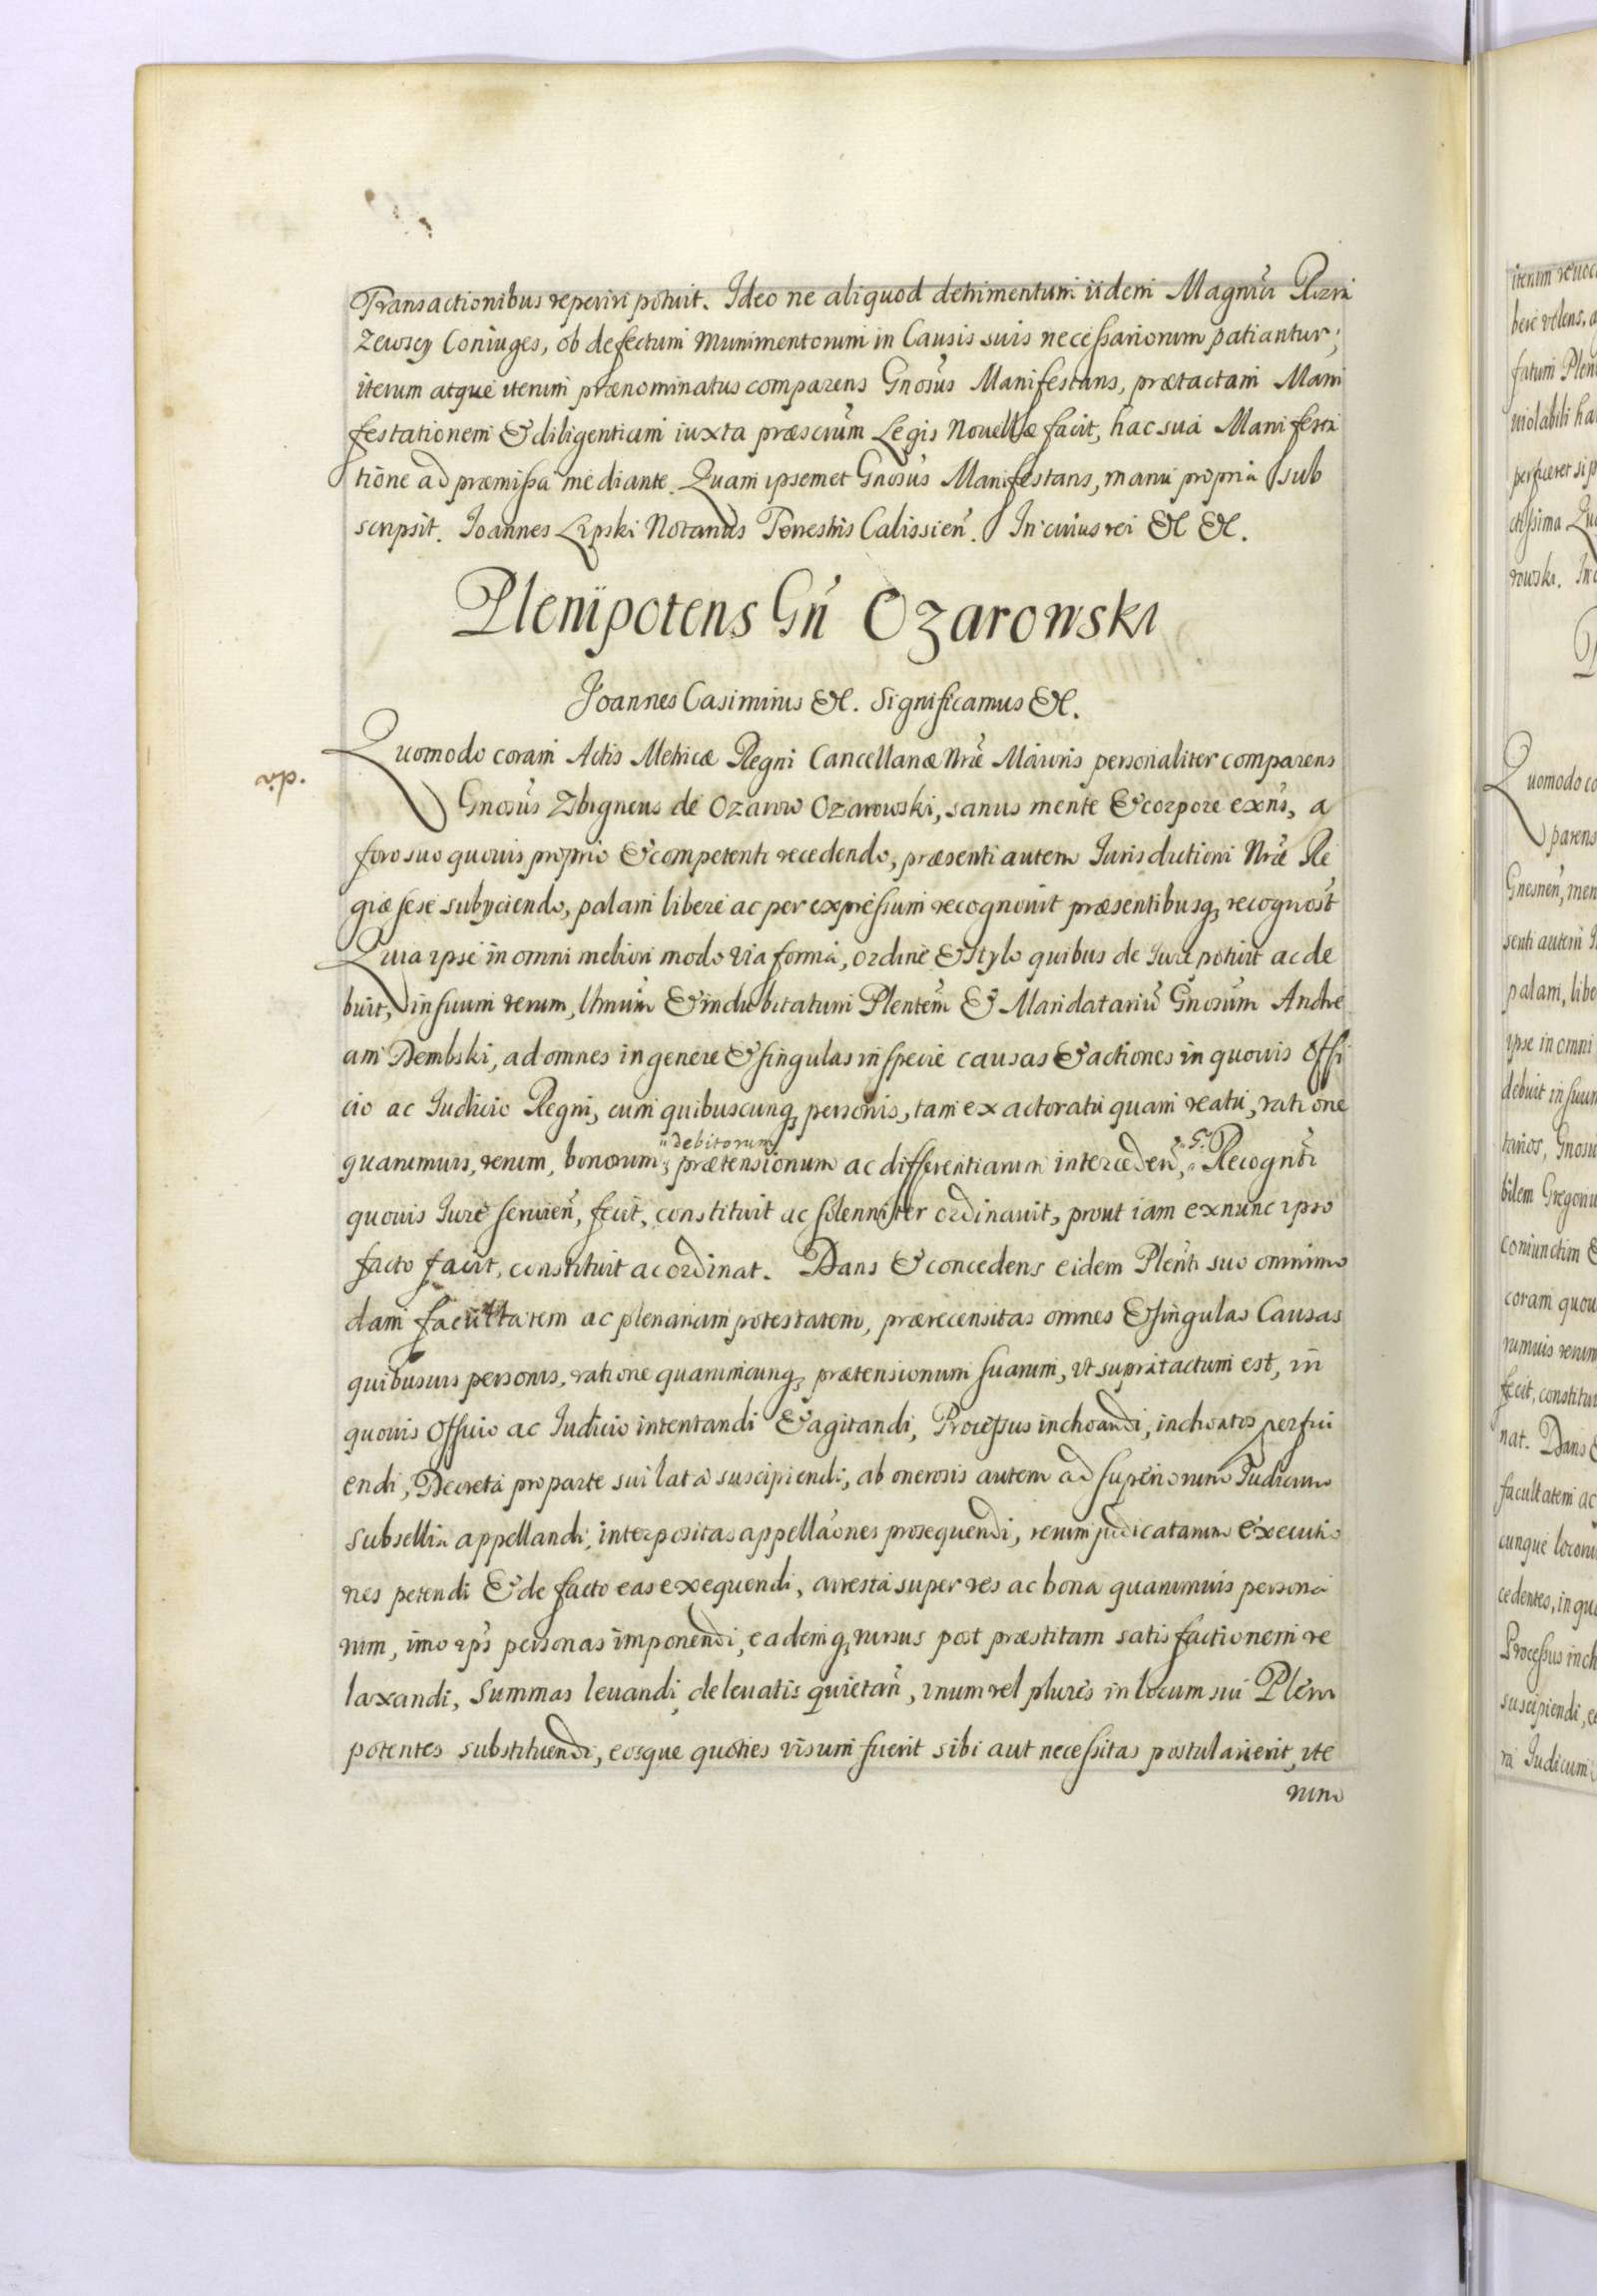 Transactionibus reperiri potuit. Ideo ne aliquod detrimentum iidem Magnici Rozra
zewscy Coniuges, ob defectum Munimentorum in Causis suis necessariorum patiantur;
iterum atque iterum prænominatus comparens Gnosus Manifestans, prætactam Mani
festationem & diligentiam iuxta præscrum Legis Nouellæ facit, hac sua Manifesta
tione ad præmissa mediante. Quam ipsemet Gnosus Manifestans, manu propria sub
scripsit. Joannes Lipski Notarius Terrestris Calissien. In cuius rei &c &c.
Plenipotens Gn̄ Ozarowski
Joannes Casimirus &c. Significamus &c.
Quomodo coram Actis Metricæ Regni Cancellariæ Nræ Maioris personaliter comparens
Gnosus Zbigneus de Ozarow Ozarowski, sanus mente & corpore exns, a
foro suo quouis proprio & competenti recedendo, præsenti autem Jurisdictioni Nræ Re
giæ sese subyciendo, palam libere ac per expressum recognouit præsentibusq recognost
Quia ipse in omni meliori modo via forma, ordine & stylo quibus de Jure potuit ac de
buit, in suum verum, Ltmum & indubitatum Plentem & Mandatariu Gnosum Andre
am Dembski, ad omnes in genere & singulas in specie causas & actiones in quouis Offi
cio ac Judicio Regni, cum quibuscunq personis, tam ex actoratu quam reatu, ratione
debitorum
quarumuis, rerum, bonorum, prætensionum ac differentiarum interceden, Recognti
quouis Jure seruien, fecit, constituit ac solenniter ordinauit, prout iam ex nunc ipso
facto facit, constituit ac ordinat. Dans & concedens eidem Plenti suo omnimo
dam facultatem ac plenariam potestatem, prærecensitas omnes & singulas Causas
quibusuis personis, ratione quarumcunq prætensionum suarum, vt supra tactum est, in
quouis Officio ac Judicio intentandi & agitandi, Processus inchoandi, inchoatos perfici
endi, Decreta pro parte sui lata suscipiendi, ab onerosis autem ad superiorum Judicum
subsellia appellandi, interpositas appellaones prosequendi, rerum judicatarum executio
nes petendi & de facto eas exequendi, arresta super res ac bona quarumuis persona
rum, imo ips personas imponendi, eademq rursus post præstitam satisfactionem re
laxandi, Summas leuandi, de leuatis quietan, vnum vel plures in locum sui Pleni
potentes substituendi, eosque quoties visum fuerit sibi aut necessitas postulauerit, ite
rum